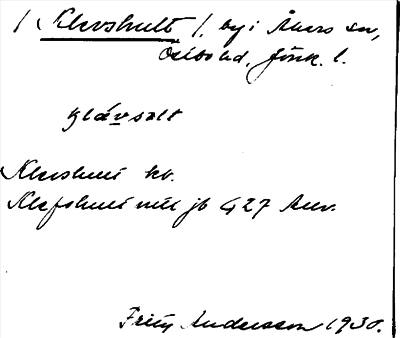 / Klevshult /, by i Åkers sn,
Östbo hd, Jönk. l.
klävsalt
Klevshult kb.
Klefshult mtl jb 427 Auv.
Fritz Andersson 1930.